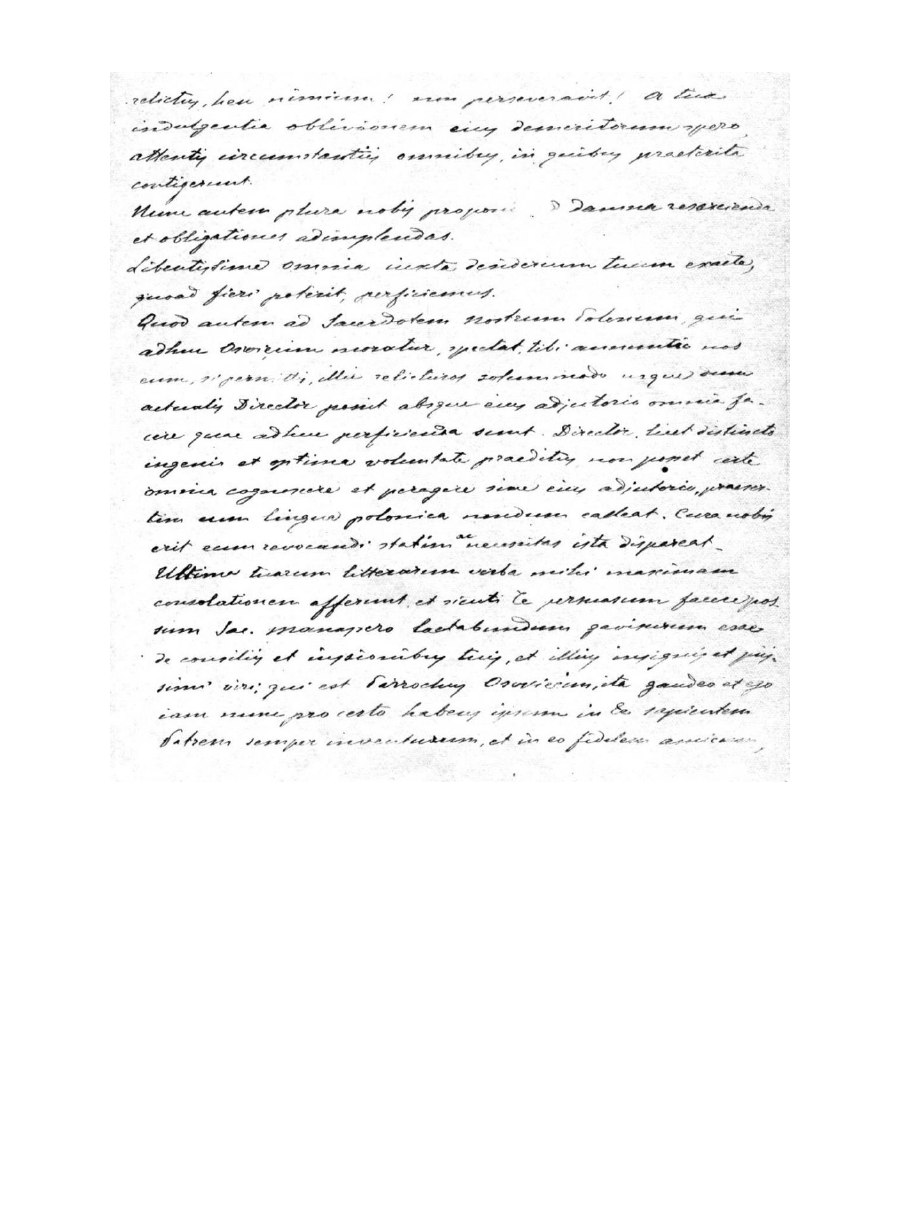 relictus, heu nimium! non perseveravit! A tua
indulgentia oblivionem eius demeritorum spero,
attentis circumstantiis omnibus, in quibus praeterita
contigerunt.
Nunc autem plura nobis proponi damna resarcienda
et obligationes adimplendas.
Libentissime omnia iuxta desiderium tuum exacte,
quoad fieri poterit, perficiemus.
Quod autem ad Sacerdotem nostrum Polonum, qui
adhuc Osvięcim moratur, spectat, tibi annuntio nos
eum, si permittis, illic relicturos solummodo usque dum
actualis Director possit absque eius adjutorio omnia fa-
cere quae adhuc perficienda sunt. Director, licet distincto
ingenio et optima voluntate praeditus, non posset certe
omnia cognoscere et peragere sine eius adjutorio, praeser-
tim cum lingua polonica nondum calleat. Cura nobis
erit eum revocandi statim ac necessitas ista dispareat.
Ultima tuarum litterarum verba mihi maximam
consolationem afferunt, et sicuti Te persuasum facere pos
sum Sac. Manassero laetabundum gavisurum esse
de consiliis et iussionibus tuis, et illius insignis et piis-
simi viri, qui est Parrochus Osvięcim, ita gaudeo et ego
iam nunc pro certo habens ipsum in Te sapientem
Patrem semper inventurum, et in eo fidelem amicum,